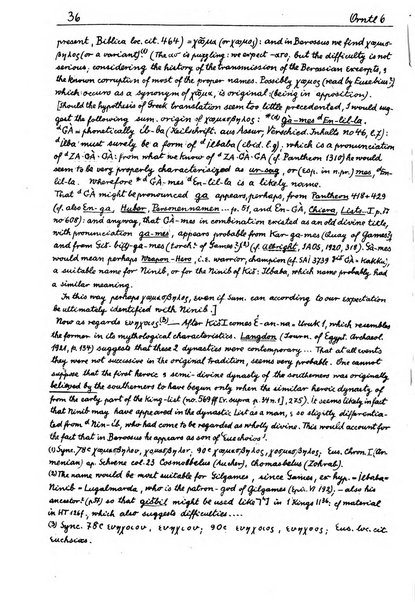 36 Orntl 6
present, Biblica loc. cit. 464) = χαζμα (or χαμος): and in Berossus we find χαμοσ-
βηλος (or a variant)(1) (The ω is puzzling: we expect -απο. but the difficulty is not
serious, considering the history of the transmission of the Berossian excerpts, &
the known corruption of most of the proper names. Possibly χωμος (read by Eusebius?)
which occurs as a synonym of χαμα, is original (being in apposition).
[Should the hypothesis of Greek translation seem too little precedented, I would sug-
gest the following sum. origin of χαμοσβηλος: *(d) Gà-mes dEn-líl-la.
dGÀ = phonetically ib-ba (Keilschrift. aus Assur, Verschied. Inhalts no 46, l.7):
dilba must surely be a form of dilbaba (ibid. l.9), which is a pronunciation
of dZA·GÀ·GÀ: from what we know of dZA·GÀ·GA (cf. Pantheon 1310) he would
seem to be very properly characterised as ur-sag, or (esp. in n.pr.) mes, dEn-
líl-la. Wherefore *dGÀ-mes dEn-líl-la is a likely name.
That dGÀ might be pronounced ga appears, perhaps, from Pantheon 418 + 429
(cf. also En-ga, Huber, Personennamen ... p. 51, and En-GÀ, Chiera, Lists. I p. 17
no 608): and anyway, that GÀ-mes in combination existed as an old divine title,
with pronunciation ga-mes, appears probable from Kar-ga-mes (Quay of Games?)
and from Giš. bil-ga-mes (torch? of Games?)(2) (cf. Albright, JAOS, 1920, 318). Gà-mes
would mean perhaps Weapon-Hero, i.e. warrior, champion (cf. SAI 3739 giš GÀ = Kakku),
a suitable name for Ninib, or for the Ninib of Kiš: Ilbaba, which name probably had
a similar meaning.
In this way perhaps χαμοσβηλος, even if Sum. can according to our expectation
be ultimately identified with Ninib.]
Now as regards ευηχοις(3) — After Kiš I comes É-an-na = Uruk 1, which resembles
the former in its mythological characteristics. Langdon (Journ. of Egypt. Archaeol.
1921, p. 134) suggests that these 2 dynasties were contemporary.... That at all events
they were not successive in the original tradition, seems very probable. One cannot
suppose that the first heroic & semi-divine dynasty of the southerners was originally
believed by the southerners to have begun only when the similar heroic dynasty of
from the early part of the King-list (no. 569 ff [cf. supra p. 34 n.1], 275). It seems likely in fact
that Ninib may have appeared in the dynastic List as a man, & so slightly differentia-
ted from dNin-ib, who had come to be regarded as wholly divine. This would account for
the fact that in Berossus he appears as son of 'Euechoios'.
(1) Sync. 78c χαμασβηλου, χωμασβηλον, 90c χαμασβηλος, χοσμασβηλος; Eus. Chron. I (Ar-
menian) ap. Schoene col. 23 Cosmobbelus (Aucher), thomasbelus (Zohrab).
(2) The name would be most suitable for Gilgames, since Games, ex hyp. = Ilbaba =
Ninib = Lugalmarda, who is the patron-god of Gilgames (Epic. VI 192), – also his
ancestor? (p 37) so that gišbil might be used like נר in 1 Kings 11 36: cf material
in HT 126 f, which also suggests difficulties....
(3) Sync. 78c ευηχοιον, ευηχιου; 90c ευηχοιος, ευηχοος; Eus. loc. cit.
Euchsios.